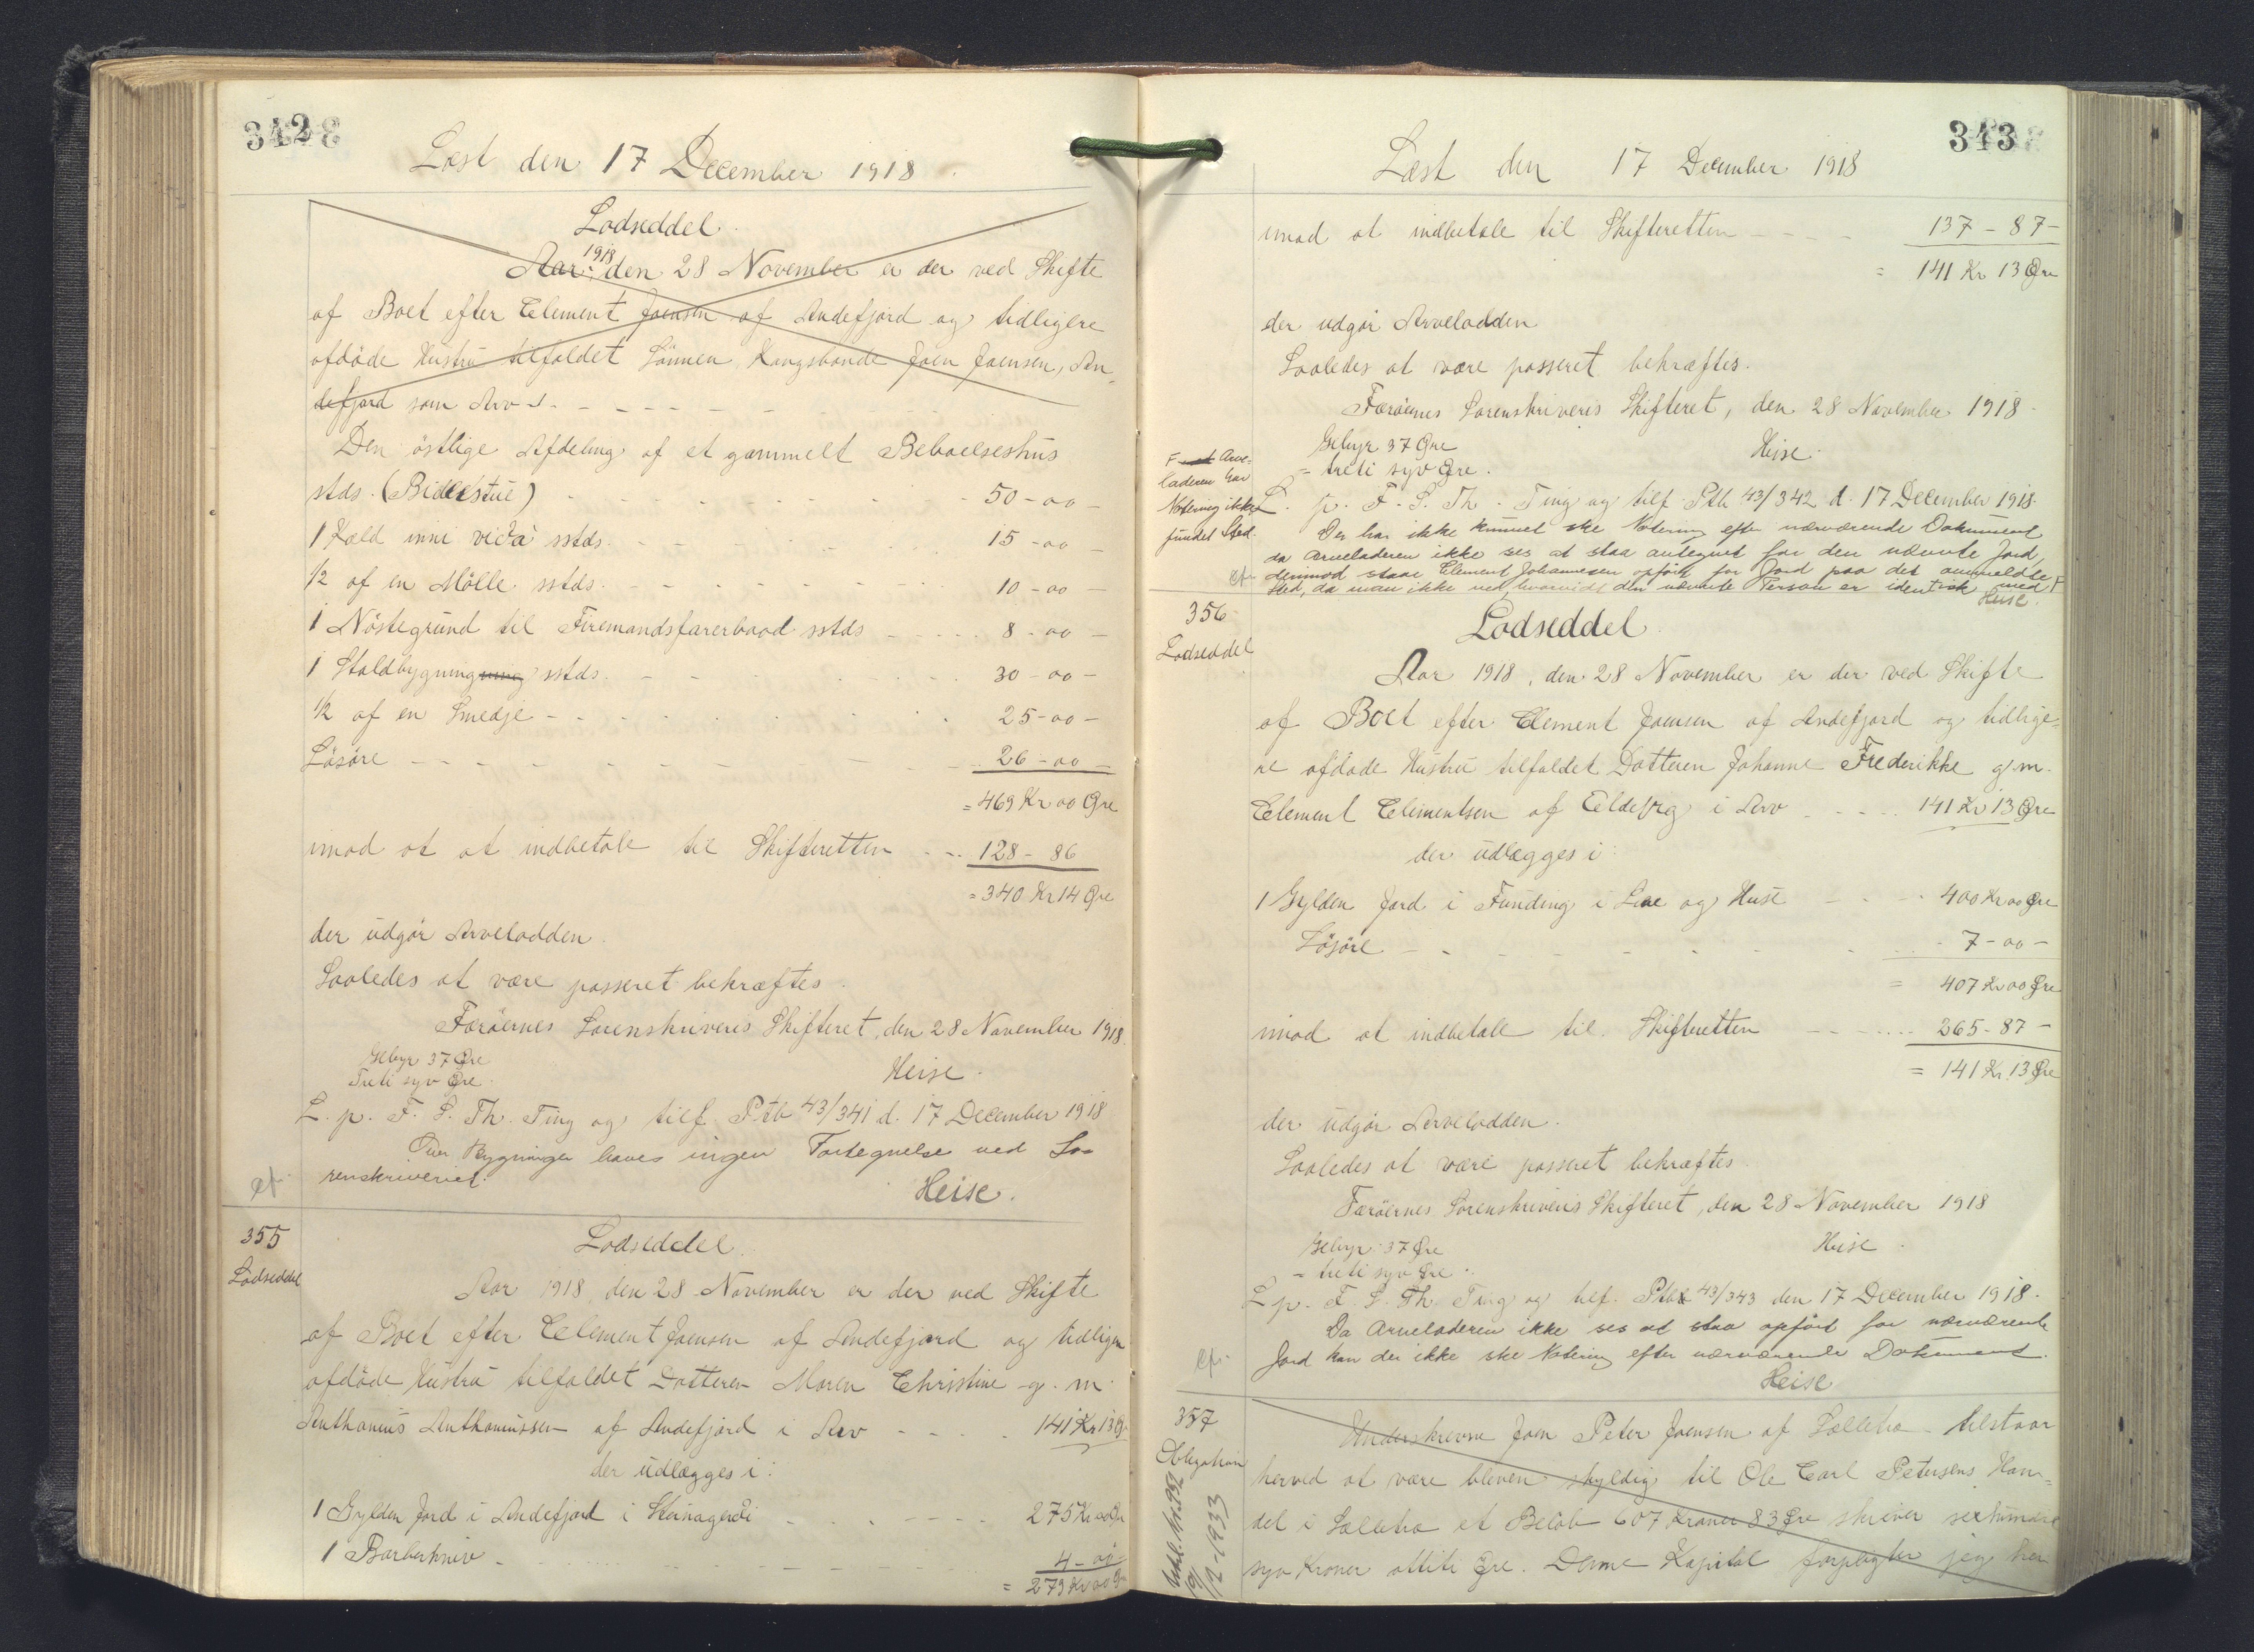 342
Læst den 17 December 1918
Lodseddel
Aar 1918, den 28 November er der ved Skifte
af Boet efter Clement Joensen af Andefjord og tidligere
afdöde Hustru tilfaldet Sönnen Kongsbonde Joen Joensen, An-
defjord som Arv
Den östlige Afdeling af et gammelt Beboelseshus
stds. (Bidlestue) 50-00-
1 Kald inni viða sstds. 15-00-
1/2 af en Mölle sstds. 10-00-
1 Nöstegrund til Firemandsfarerbaad sstds 8-00-
1 Staldbygning sstds. 30-00-
1/2 af en Smedje 25-00-
Lösöre 26-00-
= 469 Kr 00 Øre
imod at at indbetale til Skifteretten 128-86
= 340 Kr 14 Øre
der udgör Arvelodden.
Saaledes at være passeret bekræftes.
Færöernes Sorenskriveris Skifteret, den 28 November 1918.
Gebyr 37 Øre
Treti syv Øre.
Heise.
L. p. F. S. Th. Ting og tilf. Ptb 43/341 d. 17 December 1918
Over Bygninger haves ingen Fortegnelse ved So-
renskriveriet.
Heise.
355
Lodseddel
Lodseddel.
Aar 1918 den 28 November er der ved Skifte
af Boet efter Clement Joensen af Andefjord og tidligere
afdöde Hustru tilfaldet Datteren Maren Christine g. m.
Anthonius Anthoniussen af Andefjord i Arv 141 Kr 13 Ør
der udlægges i:
1 Gylden Jord i Andefjord i Steinagerdi 275 Kr 00 Ør
1 Barberkniv 4-00-
= 279 Kr 00 Ør
343
Læst den 17 December 1918
imod at indbetale til Skifteretten 137-87-
= 141 Kr 13 Øre
der udgör Arvelodden
Saaledes at være passeret bekræftes.
Færöernes Sorenskriveris Skifteret, den 28 November 1918.
Gebyr 37 Øre
= treti syv Øre.
Heise.
F Arve-
laderen har
Notering ikke
fundet Sted.
L. p. F. S. Th. Ting og tilf. Ptb 43/342 d. 17 December 1918.
Der har ikke kunnet ske Notering efter nærværende Dokument
da Arveladeren ikke ses at staa antegnet for den nævnte Jord,
derimod staar Clement Johannesen opfört for Jord paa det anmeldte
Sted, da man ikke ved, hvorvidt den nævnte Person er identisk med F
Heise.
356
Lodseddel
Lodseddel.
Aar 1918, den 28 November er der ved Skifte
af Boet efter Clement Joensen af Andefjord og tidlige-
re afdöde Hustru tilfaldet Datteren Johanne Frederikke g. m.
Clement Clementsen af Eldevig i Arv 141 Kr 13 Øre
der udlægges i:
1 Gylden Jord i Funding i Lae og Huse 400 Kr 00 Øre
Lösöre 7-00-
= 407 Kr 00 Øre
imod at indbetale til Skifteretten 265-87-
= 141 Kr. 13 Øre
der udgör Arvelodden.
Saaledes at være passeret bekræftes
Færöernes Sorenskriveris Skifteret, den 28 November 1918
Gebyr 37 Øre
= treti syv Øre.
Heise
L. p. F. S. Th. Ting og tilf. Ptb 43/343 den 17 December 1918.
Da Arveladeren ikke ses at staa opfört for nærværende
Jord kan der ikke ske Notering efter nærværende Dokument.
Heise
357
Obligation
Underskrevne Joen Peter Joensen af Selletræ tilstaar
herved at være bleven skyldig til Ole Carl Petersens Han-
del i Selletræ et Beløb 607 Kroner 83 Øre skriver sexhundrede
syv Kroner ottiti Øre. Denne Kapital forpligter jeg her